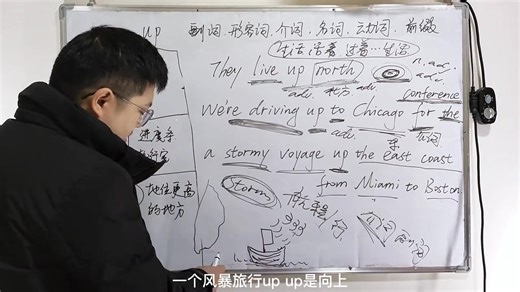 up 副词.形容词.介词.名词.动词.前缀
生活 活着 过着…生活
They live up north n. adj. adv.
adv. 北方 adv.
conference
We're driving up to Chicago for the
进度条 adv.
a stormy voyage up the east coast
地位更高的地方
Storm from Miami to Boston
航程
一个风暴旅行up up是向上